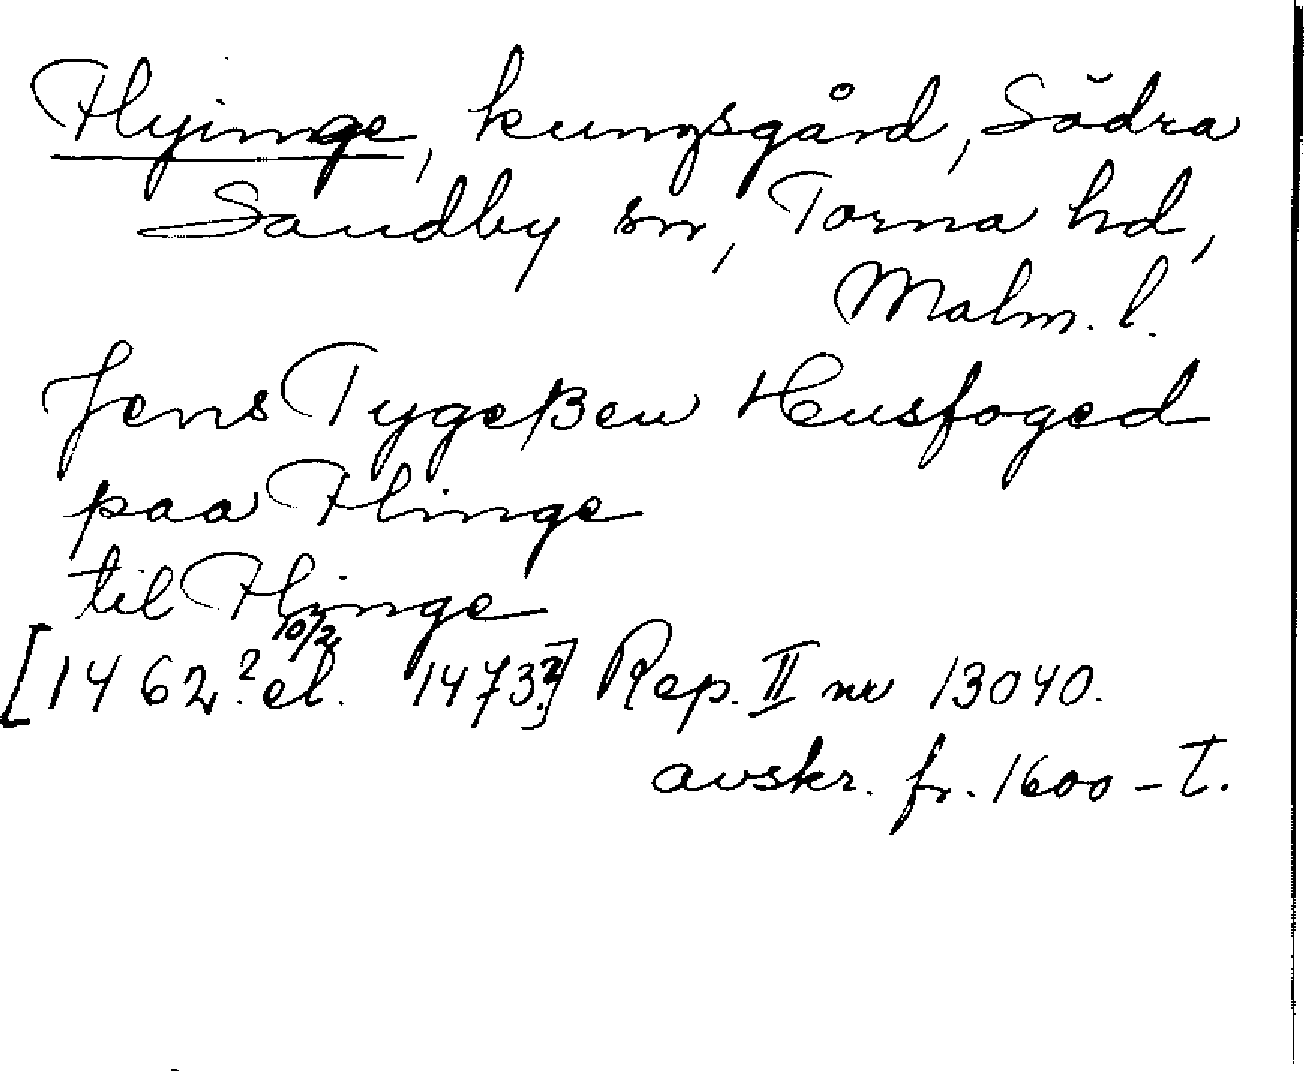 Flyinge, kungsgård, Södra
Sandby sn, Torna hd,
Malm. l.
Jens Tygeßen Husfoged
paa Flinge
til Flinge
10/2
[1462? el. 1473?] Rep. II nr 13040.
avskr. fr. 1600-t.